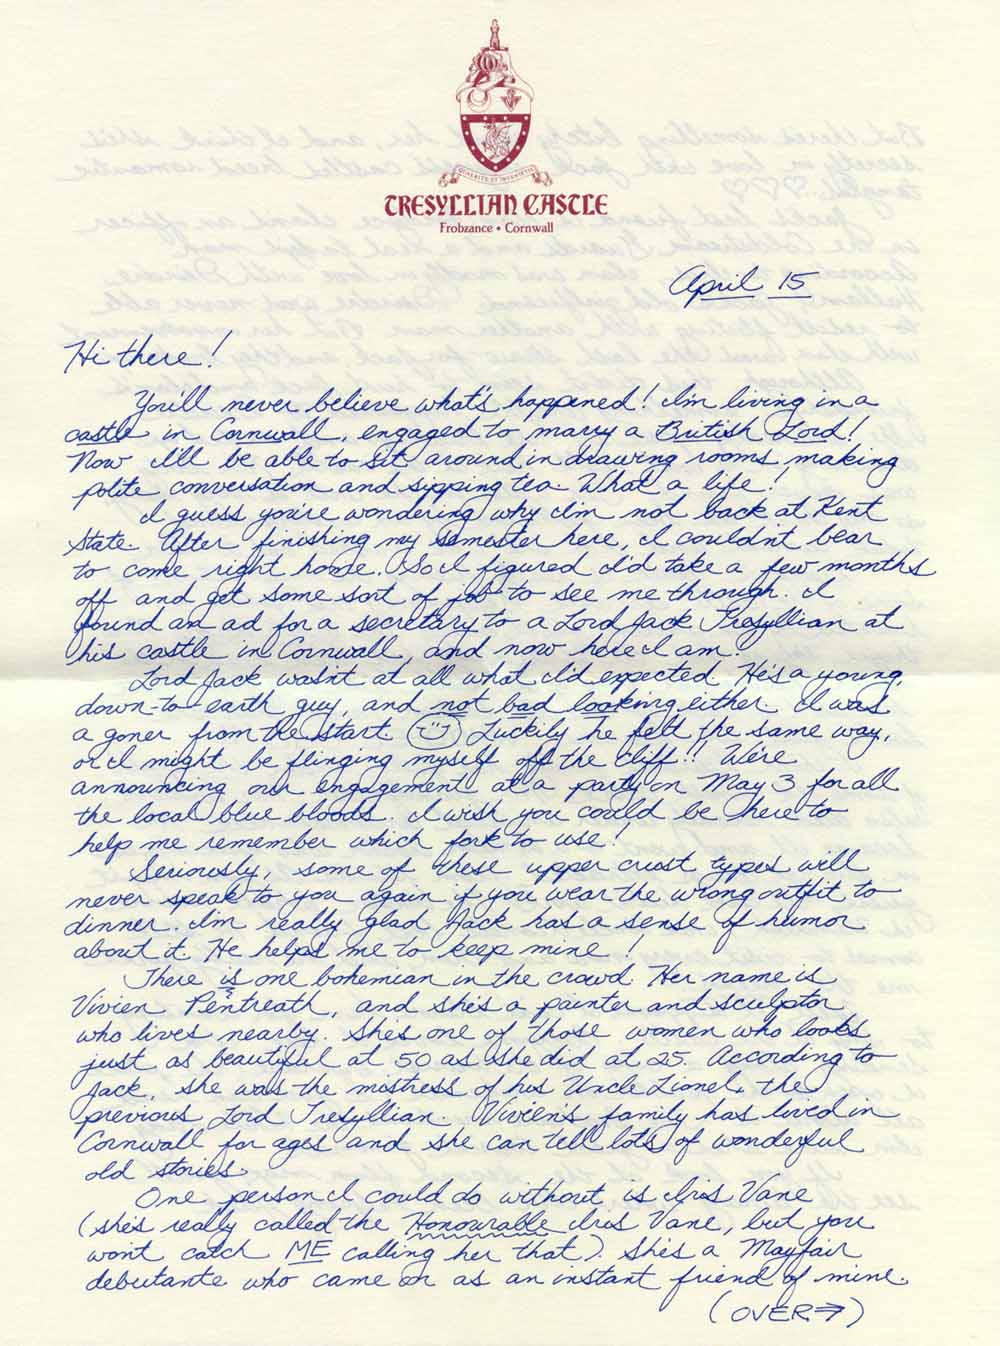 QUAERITE ET INVENIETIS
TRESYLLIAN CASTLE
Frobzance • Cornwall
April 15
Hi there!
You'll never believe what's happened! I'm living in a
castle in Cornwall, engaged to marry a British Lord!
Now I'll be able to sit around in drawing rooms making
polite conversation and sipping tea. What a life!
I guess you're wondering why I'm not back at Kent
State. After finishing my semester here, I couldn't bear
to come right home. So I figured I'd take a few months
off and get some sort of job to see me through. I
found an ad for a secretary to a Lord Jack Tresyllian at
his castle in Cornwall, and now here I am!
Lord Jack wasn't at all what I'd expected. He's a young,
down-to earth guy, and not bad looking either. I was
a goner from the start. Luckily he felt the same way,
or I might be flinging myself off the cliff!! We're
announcing our engagement at a party on May 3 for all
the local blue bloods. I wish you could be here to
help me remember which fork to use!
Seriously, some of these upper crust types will
never speak to you again if you wear the wrong outfit to
dinner. I'm really glad Jack has a sense of humor
about it. He helps me to keep mine!
There is one bohemian in the crowd. Her name is
Vivien Pentreath, and she's a painter and sculptor
who lives nearby. She's one of those women who looks
just as beautiful at 50 as she did at 25. According to
Jack, she was the mistress of his Uncle Lionel, the
previous Lord Tresyllian. Vivien's family has lived in
Cornwall for ages and she can tell lots of wonderful
old stories.
One person I could do without is Iris Vane
(she's really called the Honourable Iris Vane, but you
won't catch ME calling her that). She's a Mayfair
debutante who came on as an instant friend of mine.
(OVER⇒)